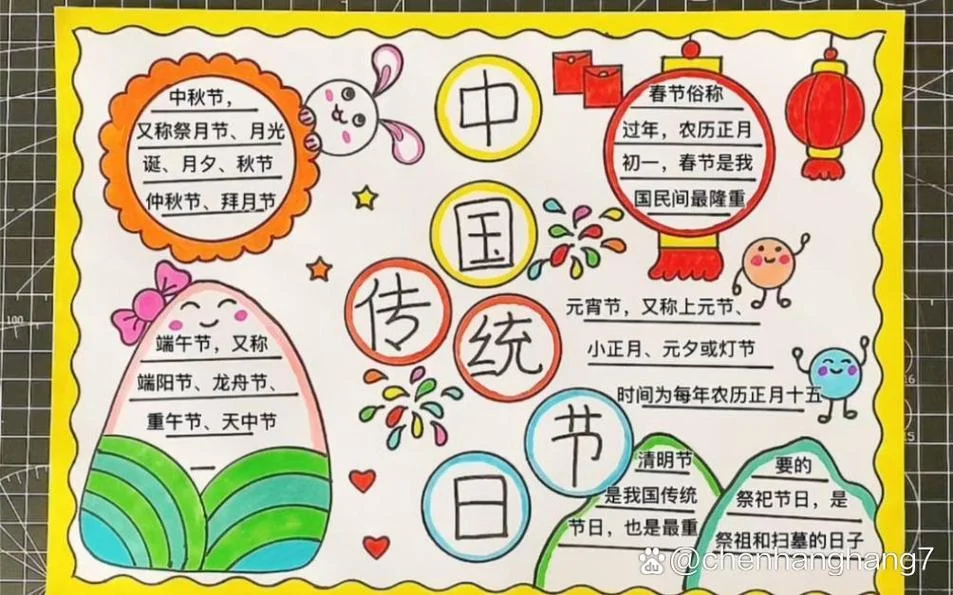 中国传统节日
中秋节，
又称祭月节、月光
诞、月夕、秋节
仲秋节、拜月节
春节俗称
过年，农历正月
初一，春节是我
国民间最隆重
元宵节，又称上元节、
小正月、元夕或灯节
时间为每年农历正月十五
端午节，又称
端阳节、龙舟节、
重午节、天中节
清明节
是我国传统
节日，也是最重
要的
祭祀节日，是
祭祖和扫墓的日子
100
16
15
Bai du @chenhanghang7